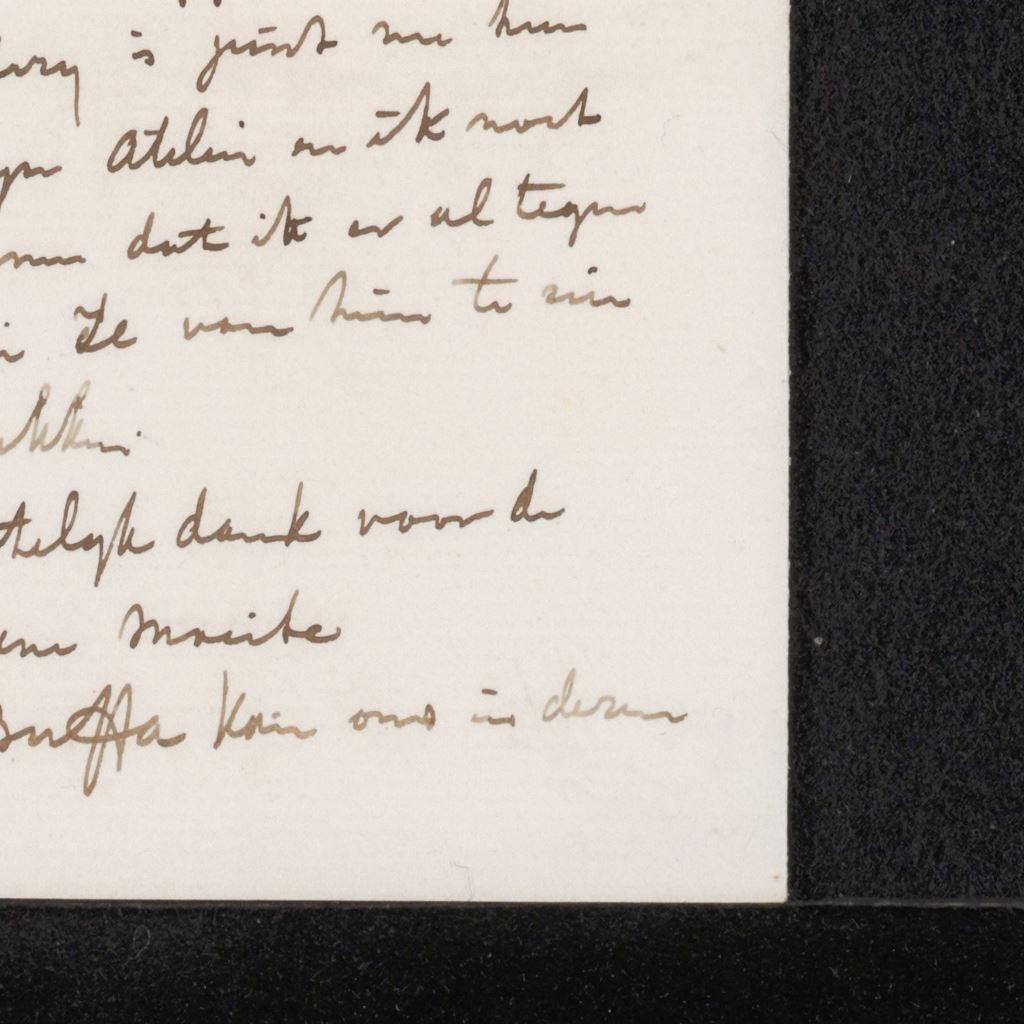 is juist me hun
Atelier en ik moet
dat ik er al tegen
ze van hun te zien
kken.
telijk dank voor de
moeite
Buffa kom ons in dezen